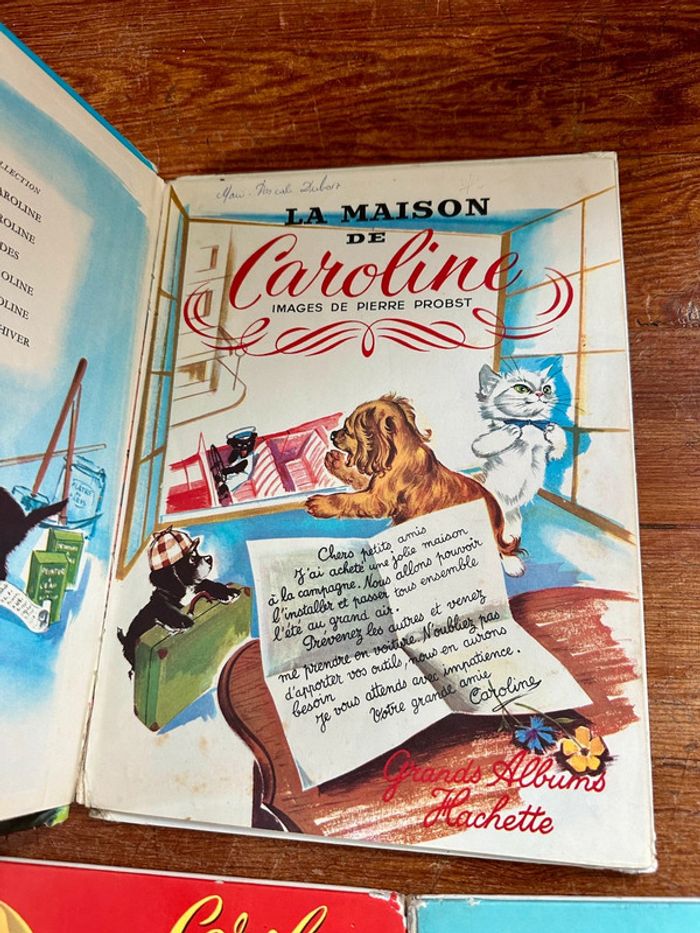 OLLECTION
AROLINE
ROLINE
DES
OLINE
OLINE
HIVER
LA MAISON
DE
Caroline
IMAGES DE PIERRE PROBST
Chers petits amis
J'ai acheté une jolie maison
à la campagne. Nous allons pouvoir
l'installer et passer tous ensemble
l'été au grand air.
Prévenez les autres et venez
me prendre en voiture. N'oubliez pas
d'apporter vos outils, nous en aurons
besoin
Je vous attends avec impatience.
Votre grande amie
Caroline
Grands Albums
Hachette